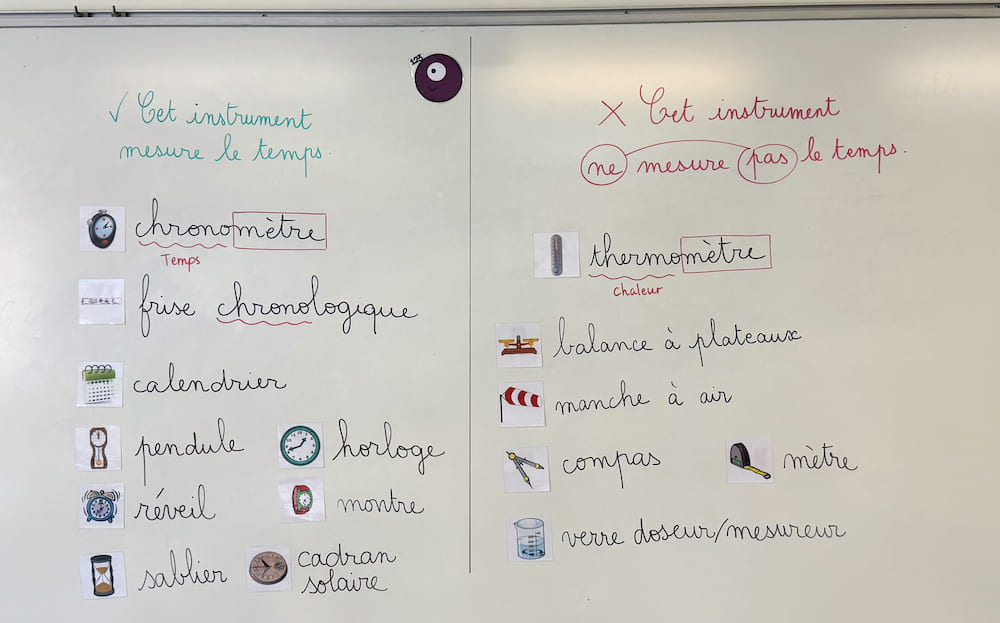 123
✓ Cet instrument
mesure le temps.
chronomètre
Temps
frise chronologique
calendrier
pendule
horloge
réveil
montre
sablier
cadran
solaire
✗ Cet instrument
ne mesure pas le temps.
thermomètre
chaleur
balance à plateaux
manche à air
compas
mètre
verre doseur/mesureur